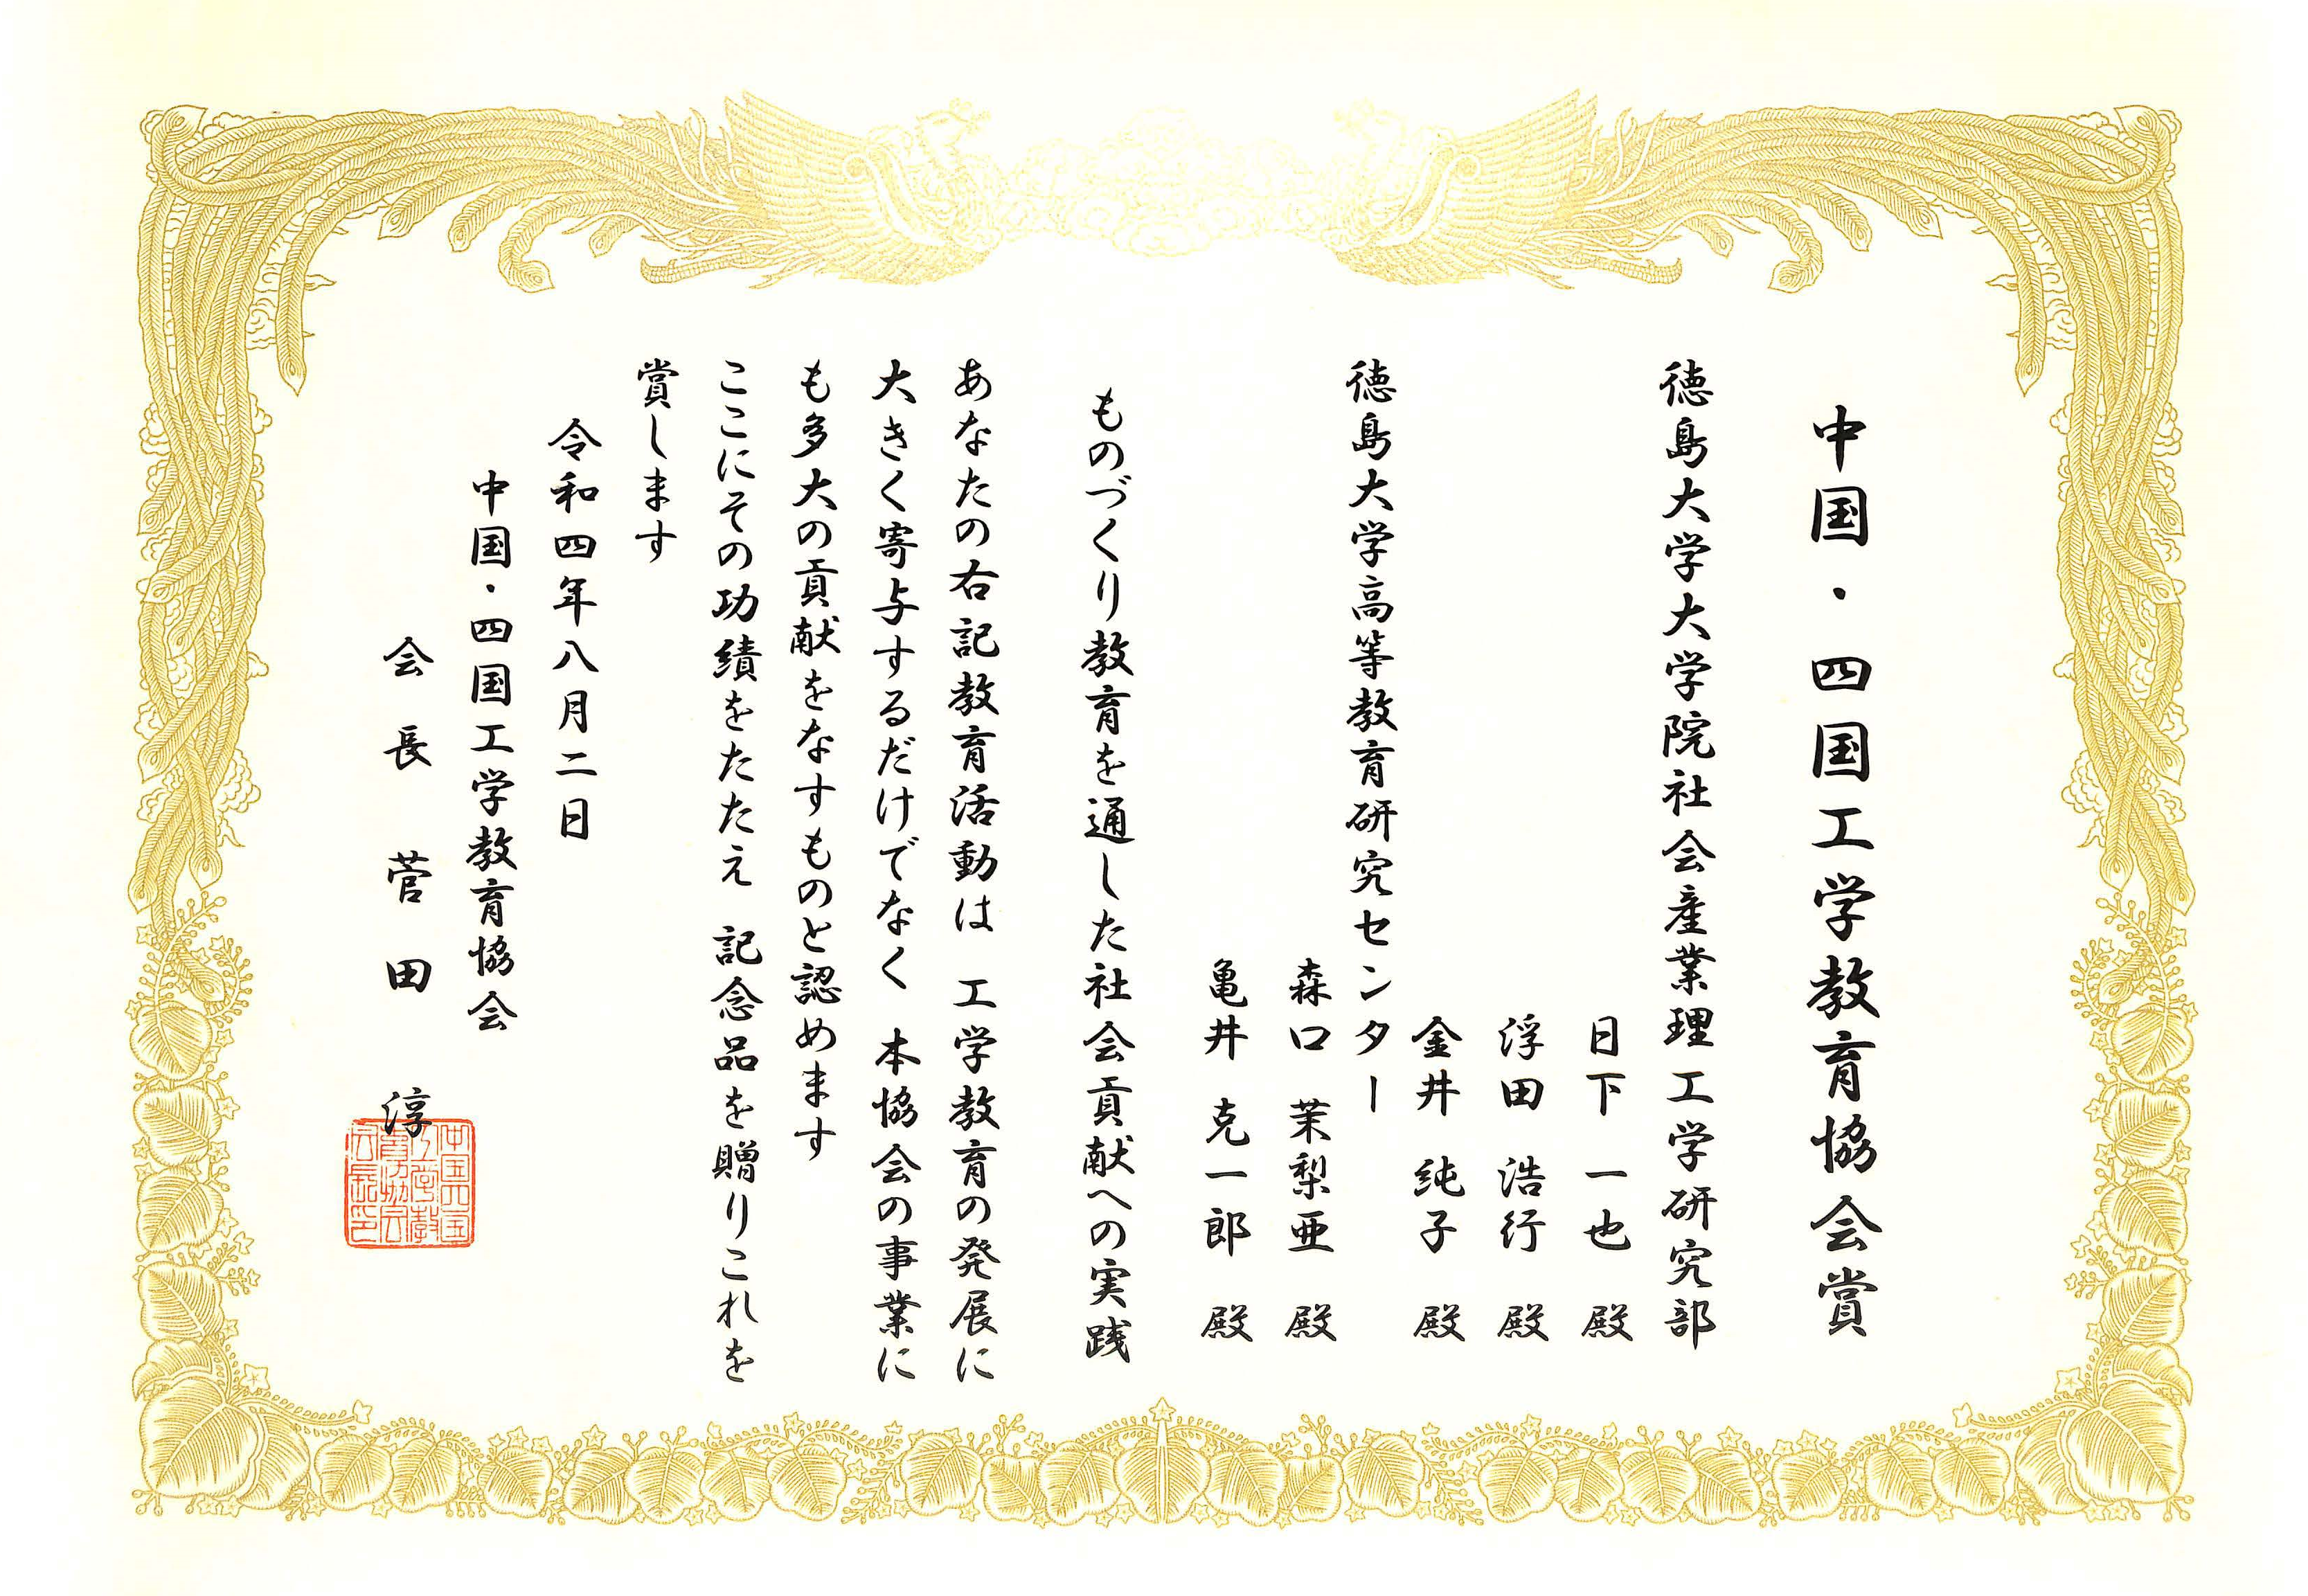 中国・四国工学教育協会賞
徳島大学大学院社会産業理工学研究部
日下 一也 殿
浮田 浩行 殿
金井 純子 殿
徳島大学高等教育研究センター
森口 茉梨亜 殿
亀井 克一郎 殿
ものづくり教育を通した社会貢献への実践
あなたの右記教育活動は 工学教育の発展に
大きく寄与するだけでなく 本協会の事業に
も多大の貢献をなすものと認めます
ここにその功績をたたえ 記念品を贈りこれを
賞します
令和四年八月二日
中国・四国工学教育協会
会長 菅田 淳
中国四国
工学教
育協会
会長印